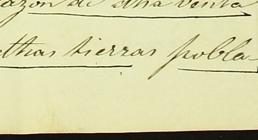 azon de dha venta
thas tierras pobla